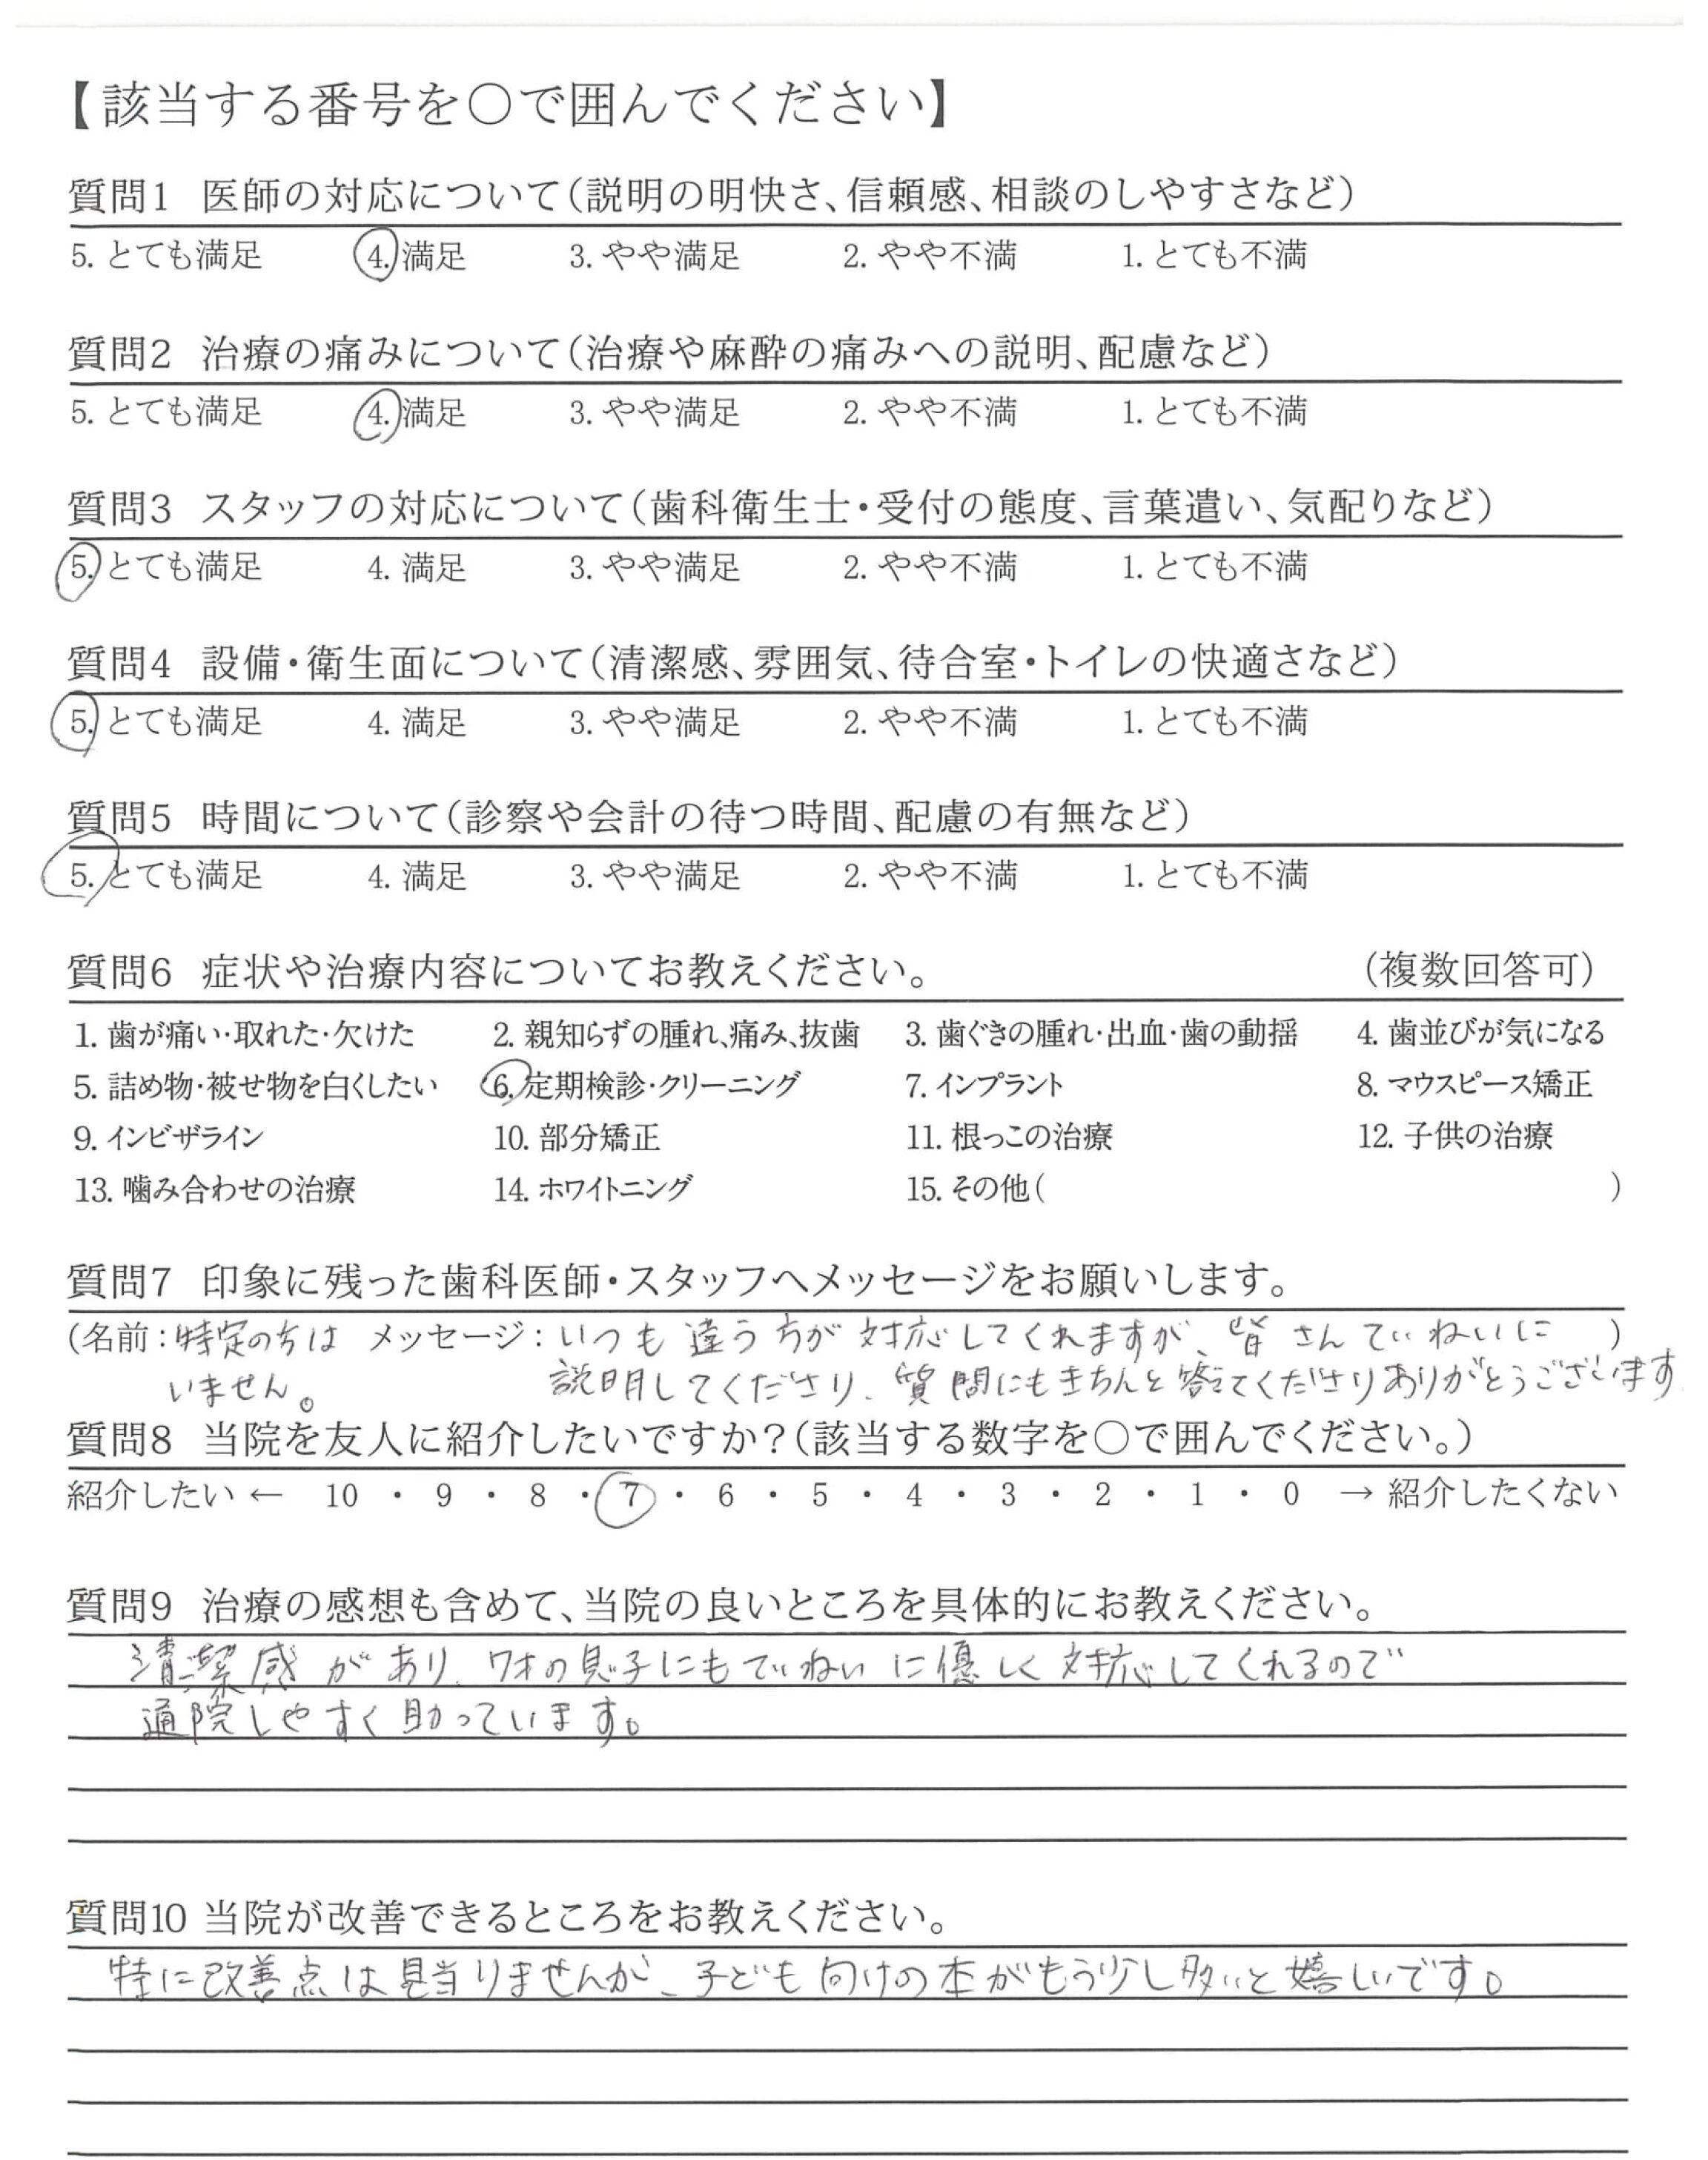 【該当する番号を○で囲んでください】
質問1 医師の対応について(説明の明快さ、信頼感、相談のしやすさなど)
5. とても満足 4. 満足 3. やや満足 2. やや不満 1. とても不満
質問2 治療の痛みについて(治療や麻酔の痛みへの説明、配慮など)
5. とても満足 4. 満足 3. やや満足 2. やや不満 1. とても不満
質問3 スタッフの対応について(歯科衛生士・受付の態度、言葉遣い、気配りなど)
5. とても満足 4. 満足 3. やや満足 2. やや不満 1. とても不満
質問4 設備・衛生面について(清潔感、雰囲気、待合室・トイレの快適さなど)
5. とても満足 4. 満足 3. やや満足 2. やや不満 1. とても不満
質問5 時間について(診察や会計の待つ時間、配慮の有無など)
5. とても満足 4. 満足 3. やや満足 2. やや不満 1. とても不満
質問6 症状や治療内容についてお教えください。 (複数回答可)
1. 歯が痛い・取れた・欠けた 2. 親知らずの腫れ、痛み、抜歯 3. 歯ぐきの腫れ・出血・歯の動揺 4. 歯並びが気になる
5. 詰め物・被せ物を白くしたい 6. 定期検診・クリーニング 7. インプラント 8. マウスピース矯正
9. インビザライン 10. 部分矯正 11. 根っこの治療 12. 子供の治療
13. 噛み合わせの治療 14. ホワイトニング 15. その他( )
質問7 印象に残った歯科医師・スタッフへメッセージをお願いします。
(名前：特定の方は メッセージ：いつも違う方が対応してくれますが、皆さんていねいに )
いません。 説明してくださり、質問にもきちんと答えてくださりありがとうございます
質問8 当院を友人に紹介したいですか？(該当する数字を○で囲んでください。)
紹介したい ← 10 ・ 9 ・ 8 ・ 7 ・ 6 ・ 5 ・ 4 ・ 3 ・ 2 ・ 1 ・ 0 → 紹介したくない
質問9 治療の感想も含めて、当院の良いところを具体的にお教えください。
清潔感があり、7才の息子にもていねいに優しく対応してくれるので
通院しやすく助っています。
質問10 当院が改善できるところをお教えください。
特に改善点は見当りませんが、子ども向けの本がもう少し多いと嬉しいです。